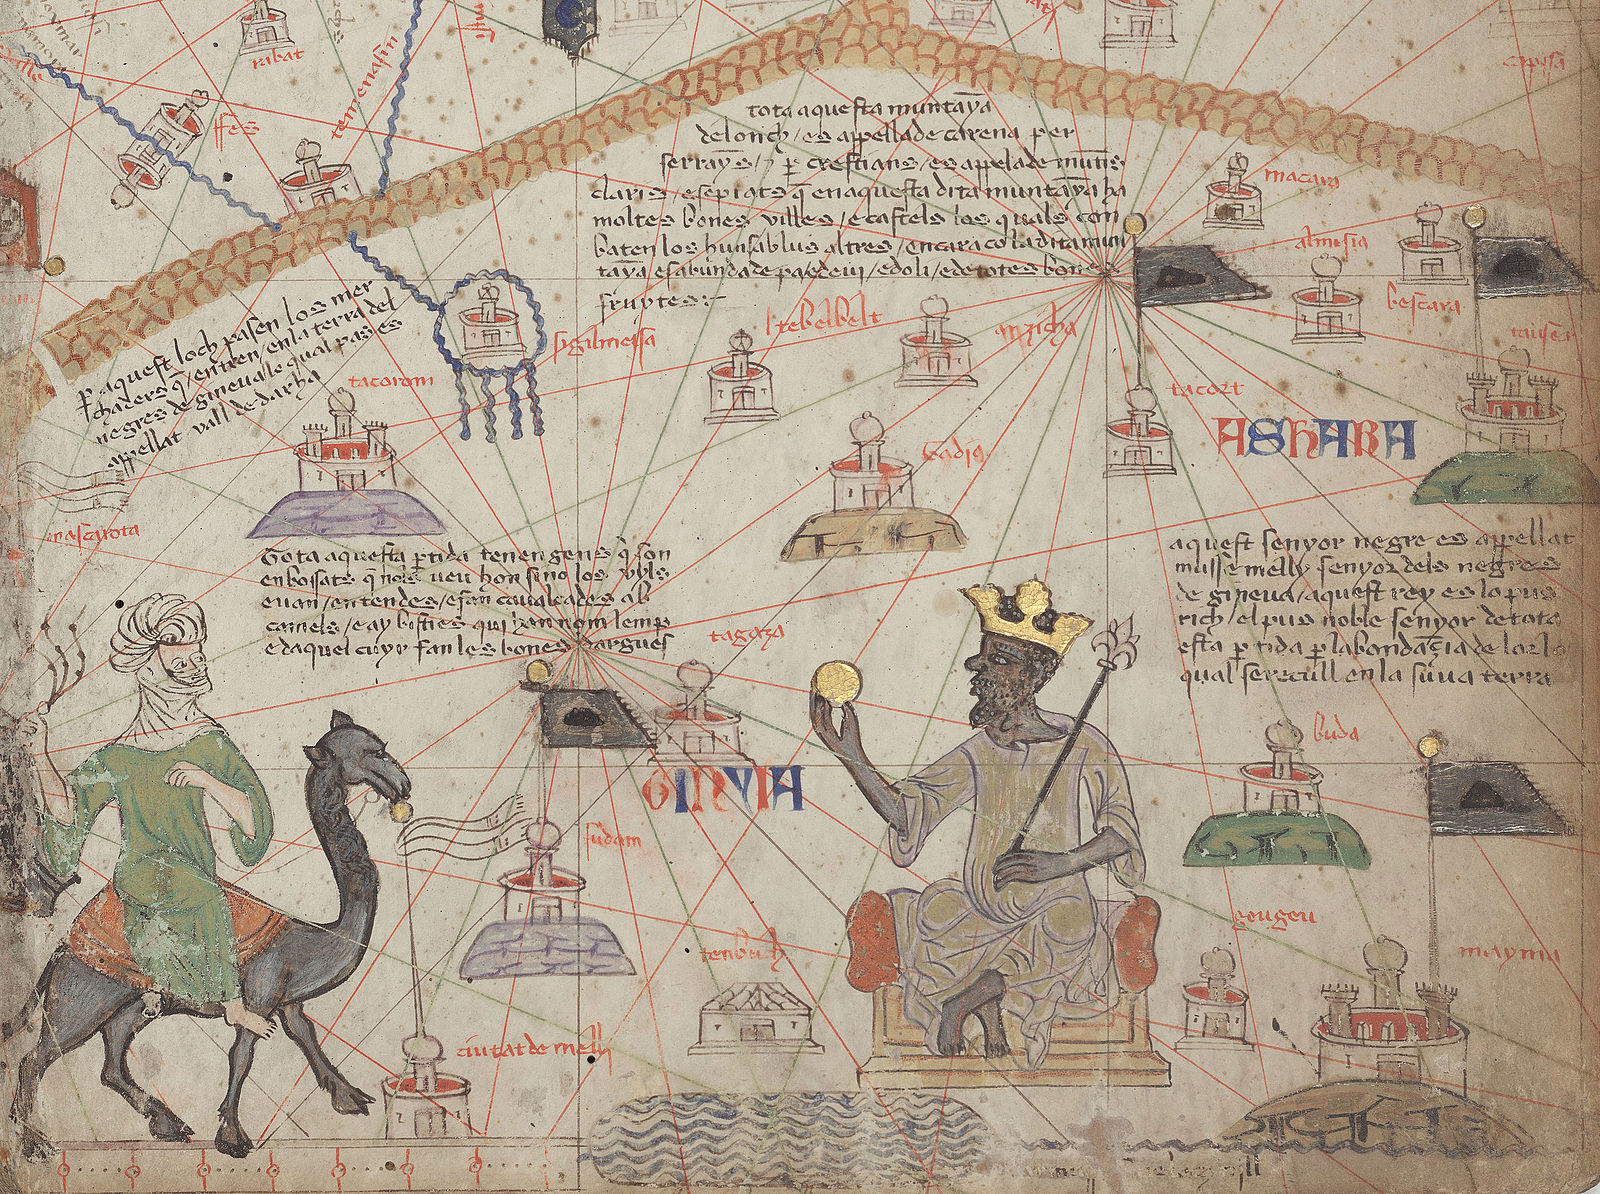 rabat
fes
tota aquesta muntaya
de lonch / es appellade carena per
serrayns / ⁊ per crestians / es appelade munts
claris / e sepiats q̄ en aquesta dita muntaya ha
moltes bones villes / e castels los quals con
baten los huns ab lus altres / encara co la dita mun
taya es abunda de pa e de vi / e d oli / e de totes bones
fruytes :-
macara
almisia
bescara
P aquest loch pasen los mer
chaders q̄ / entren / en la terra del
negres de gineva le qual pas es
appellat vall de darha
sigilmessa
tebelbelt
anzicha
tacort
tacorom
ASHARA
mascarota
Gota aquesta ptida tenen gens q̄ son
enboisats q̄ nols veu hom sino los uyls
e van / en tendes / e fan cavalcades ab
camels / e ay bisties qui han nom lemp
e daquel cuyr fan les bones dargues
aquest senyor negre es appellat
musse melly senyor dels negres
de gineva / aquest rey es lo pus
rich / el pus noble senyor de tota
esta ptida p labondacia de lor lo
qual se recull en la suua terra
tagaza
buda
GINYIA
sudam
tenbuch
geugeu
mayma
ciutat de melli